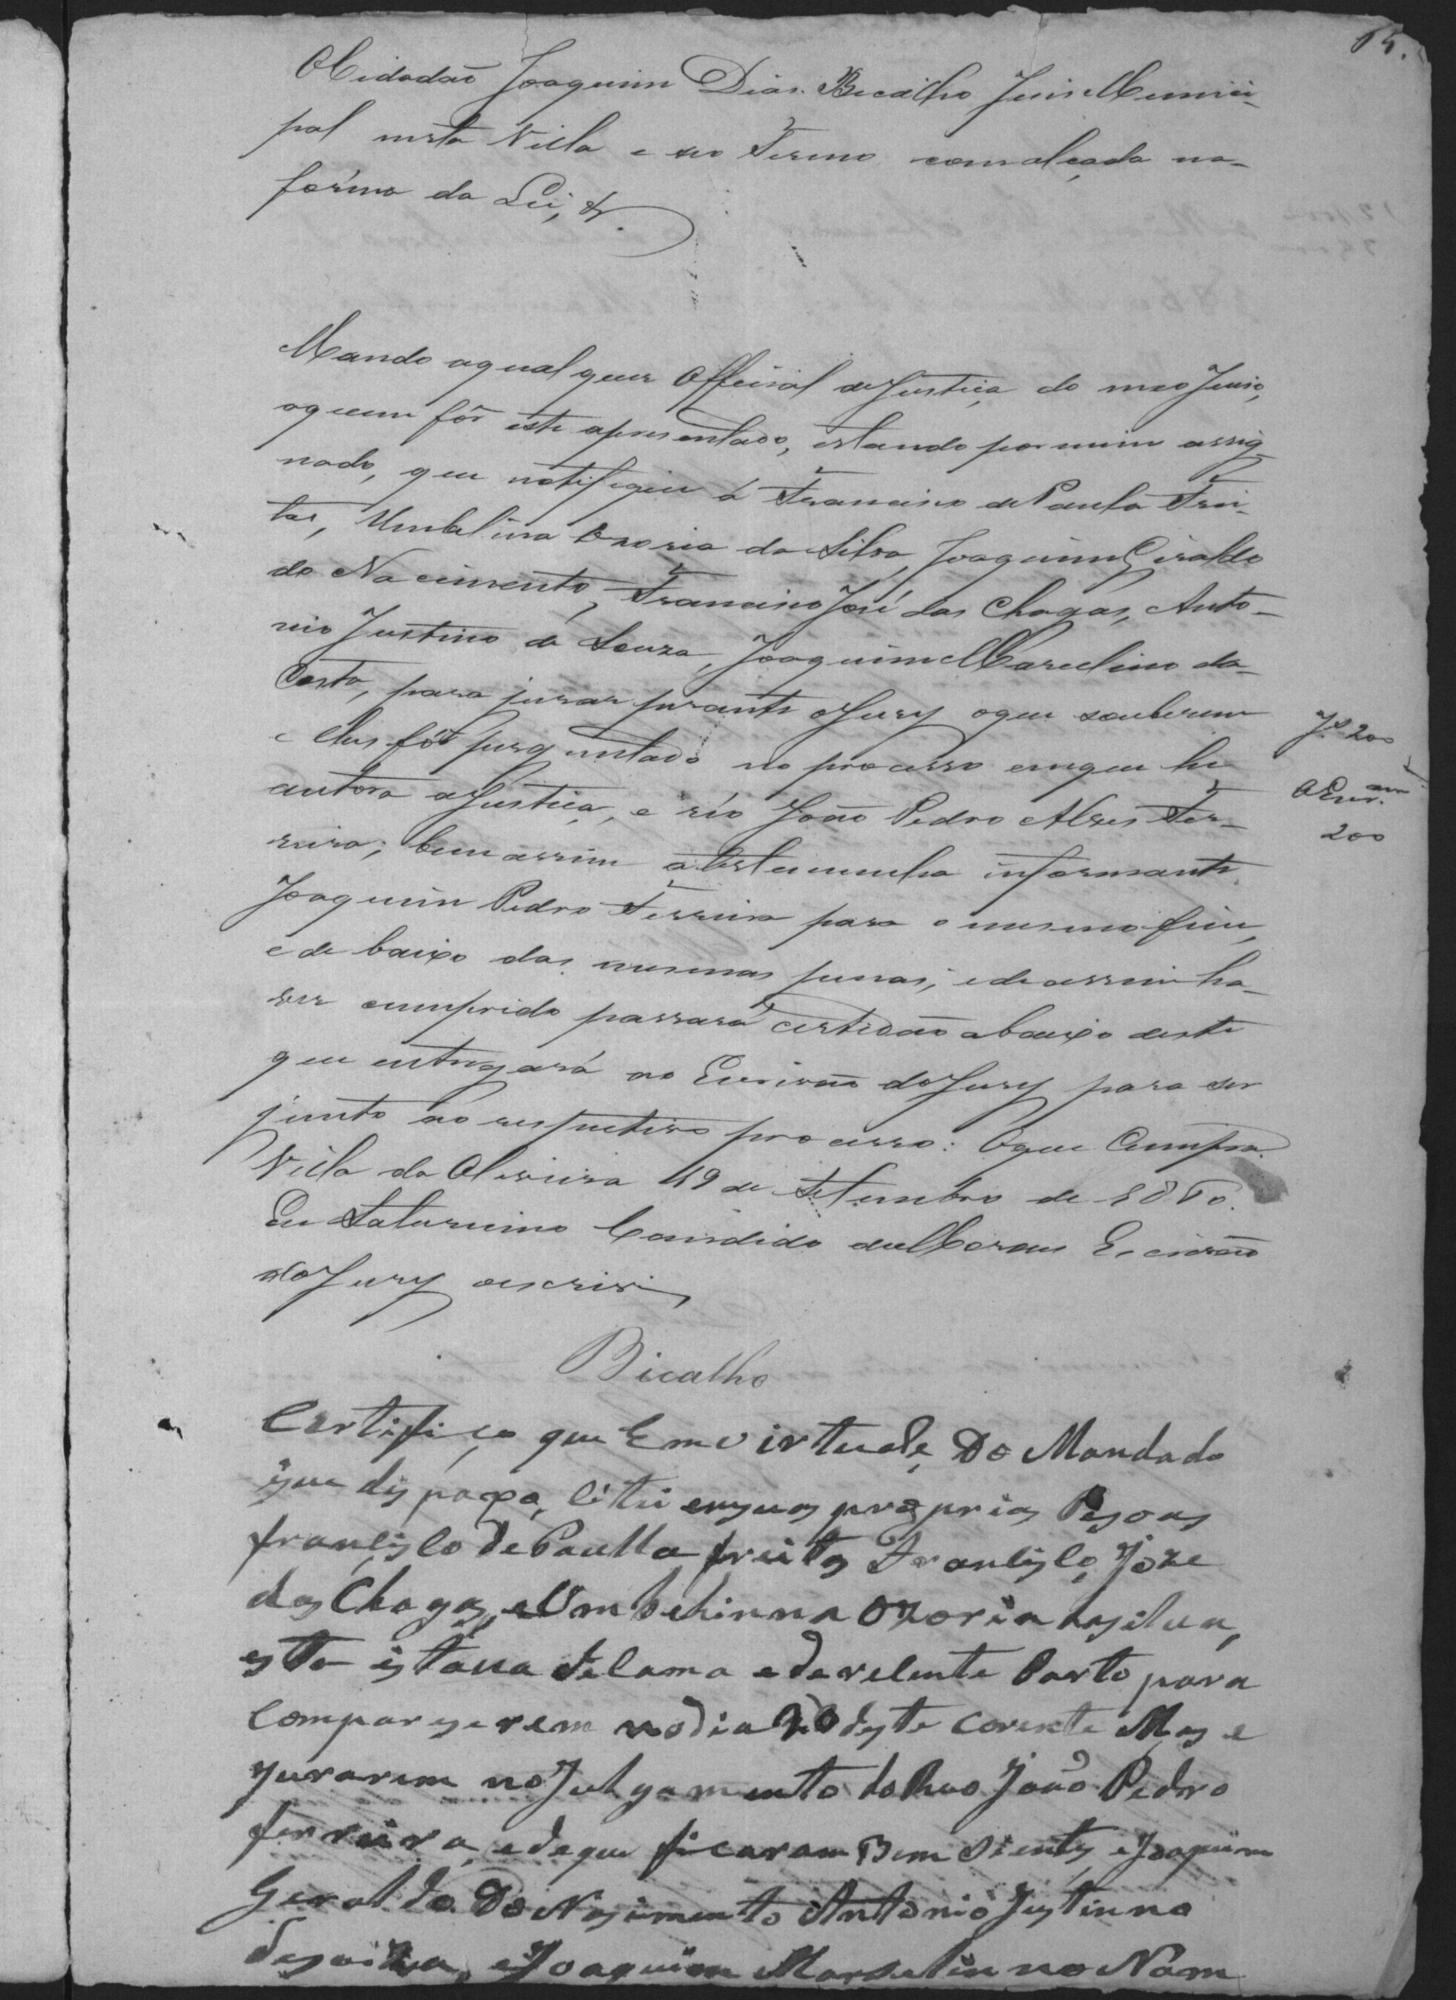 O Cidadão Joaquim Dias Bicalho Juis Munici-
pal nesta Villa e seo Termo com alçada na
forma da Lei, &.
Mando aqualquer Official de Justiça do meo Juiso,
aquem fôr este apresentado, estando por mim assig-
nado, que notifique á Francisco de Paula Frei-
tas, Umbelina Ozoria da Silva, Joaquim Giraldo
do Nacimento, Francisco José das Chagas, Anto-
nio Justino de Souza, Joaquim Marcelino da
Costa, para jurar perante o Jury oque souberem
e lhes fôr perguntado no processo emque he
autora a Justiça, e réo João Pedro Alves Fer-
reira; bem assim a testemunha informante
Joaquim Pedro Ferreira para o mesmo fim,
e de baixo das mesmas penas; e de assim ha-
ver cumprido passará certidão abaixo deste
que entregará ao Escrivão do Jury para ser
junto ao respectivo processo: Oque Cumpra.
Villa da Oliveira 19 de Setembro de
Eu Saturnino Candido de Moraes Escrivão
do Jury o escrivi
Bicalho
Js. 200
O Escr.am
200
Certifiço que Em virtude Do Mandado
que dispoem, Citei em suas proprias Pesoas
francisco de Paulla freitas Francisco Joze
das Chagas, e Umbelinna Ozoria da silva,
esta estava de Cama e de reCente Parto para
Compareserem no dia 20 deste Corente Mes e
Jurarem no Julgamento do Reo João Pedro
ferreira, e de que ficaram Bem Sientes e Joaquim
Geraldo Do Nasimento Antonio Justinno
desouza, e Joaquim Marselinno Nam